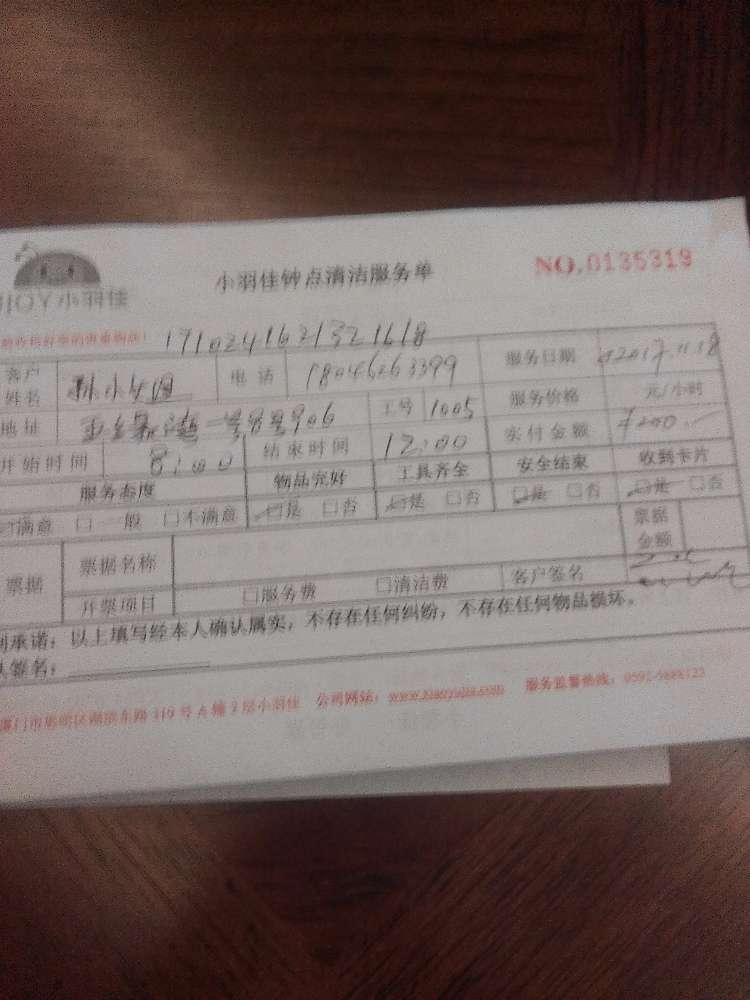 小羽佳
小羽佳钟点清洁服务单
NO.0135319
1710241621321618
客户姓名 电话 18046263399 服务日期 2017.11.18
地址 906 工号 1005 服务价格 元/小时
开始时间 8:00 结束时间 12:00 实付金额 ¥200
服务态度 物品完好 工具齐全 安全结束 收到卡片
满意 □一般 □不满意 □是 □否 □是 □否 □是 □否 □是 □否
票据 票据名称 票据金额
开票项目 □服务费 □清洁费 客户签名
承诺:以上填写经本人确认属实,不存在任何纠纷,不存在任何物品损坏。
签名:
厦门市思明区湖滨东路319号A幢2层小羽佳 公司网站: 服务监督热线: